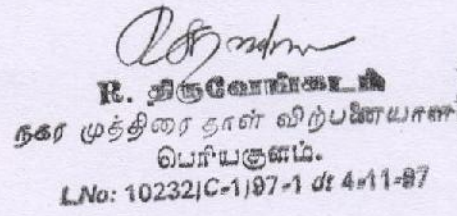 R. திருவேங்கடம்
நகர முத்திரை தாள் விற்பனையாளர்
பெரியகுளம்.
L.No: 10232/C-1/97-1 dt 4-11-97